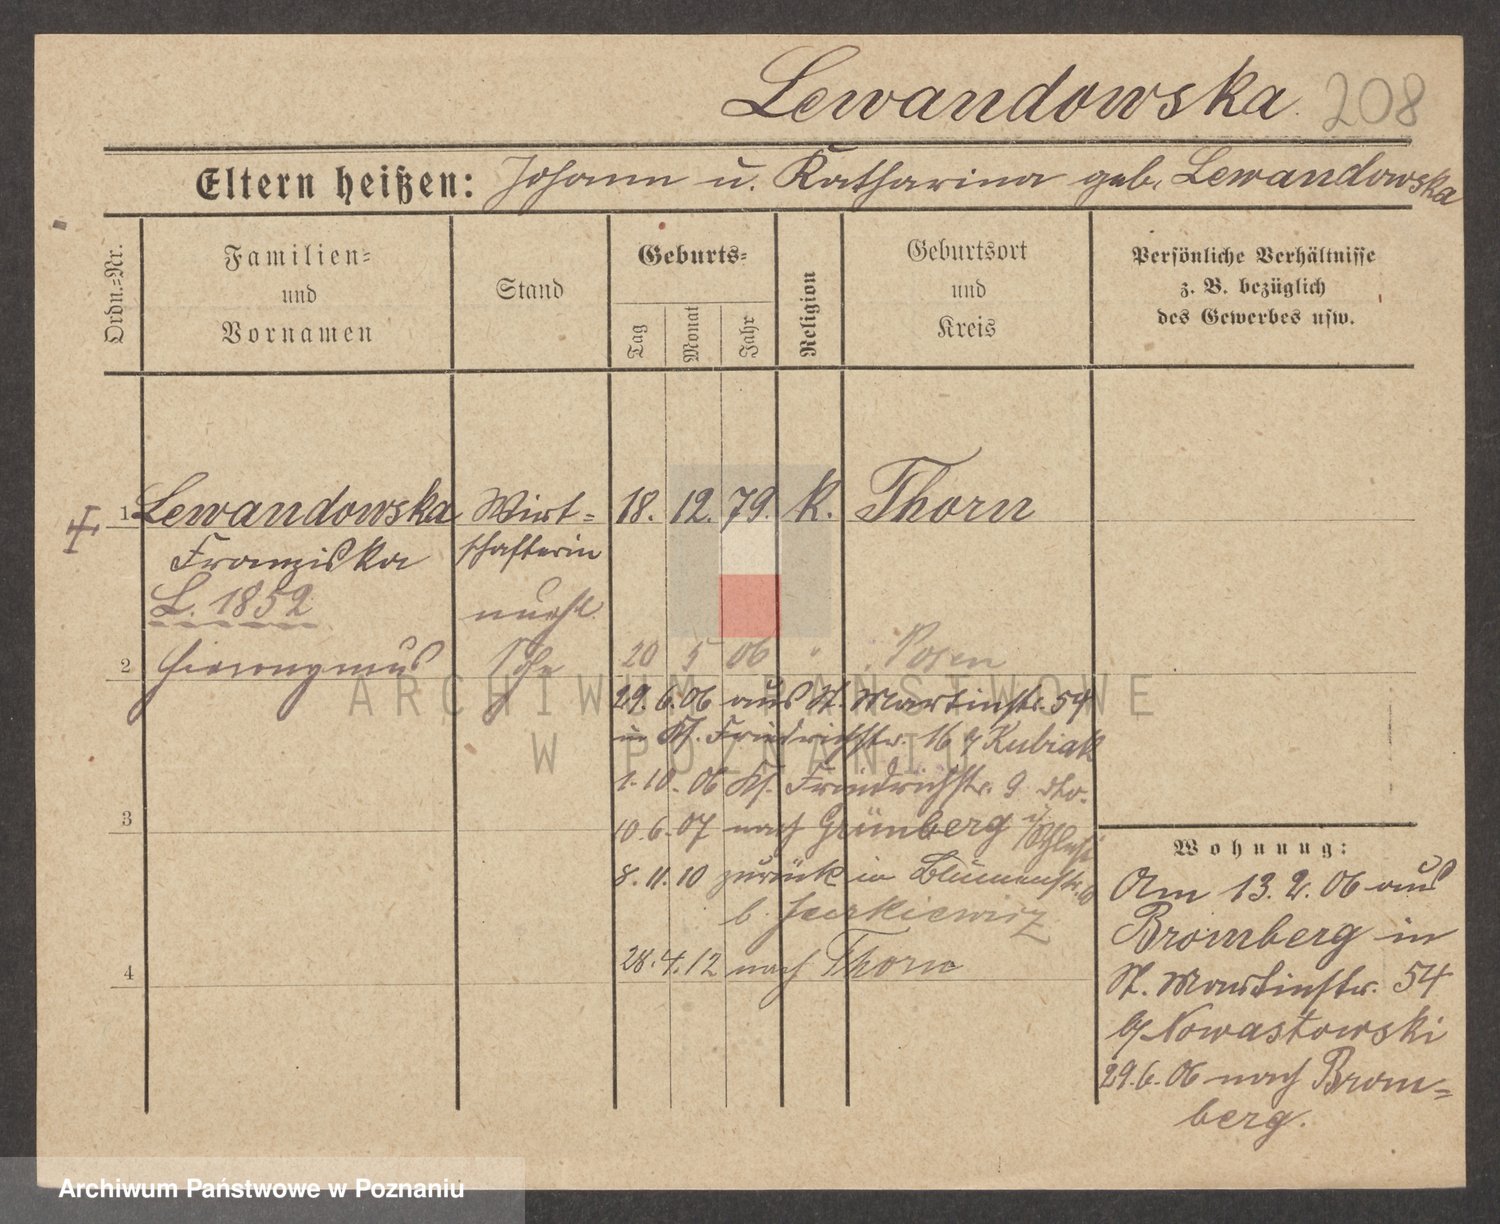 Lewandowska. 208
Eltern heißen: Johann u. Katharina geb. Lewandowska
Ordn.=Nr.
Familien=
und
Vornamen
Stand
Geburts=
Tag
Monat
Jahr
Religion
Geburtsort
und
Kreis
Persönliche Verhältnisse
z. B. bezüglich
des Gewerbes usw.
1 Lewandowska Wirt= 18. 12. 79. k. Thorn
Franziska schafterin
L. 1852
2 Hieronymus Sohn 20 5 06 " Posen
29. 6. 06 aus St. Martinstr. 54
in Kl. Friedrichstr. 16 Kubiak
1. 10. 06 Kl. Friedrichstr. 9 dto.
3 10. 6. 07 nach Grünberg
8. 11. 10 zurück in Blumenstr.
b.
4 28. 4. 12 nach Thorn
Wohnung:
Am 13. 2. 06 aus
Bromberg in
St. Martinstr. 54
b/ Nowastowski
29. 6. 06 nach Brom=
berg.
ARCHIWUM PAŃSTWOWE
W POZNANIU
Archiwum Państwowe w Poznaniu